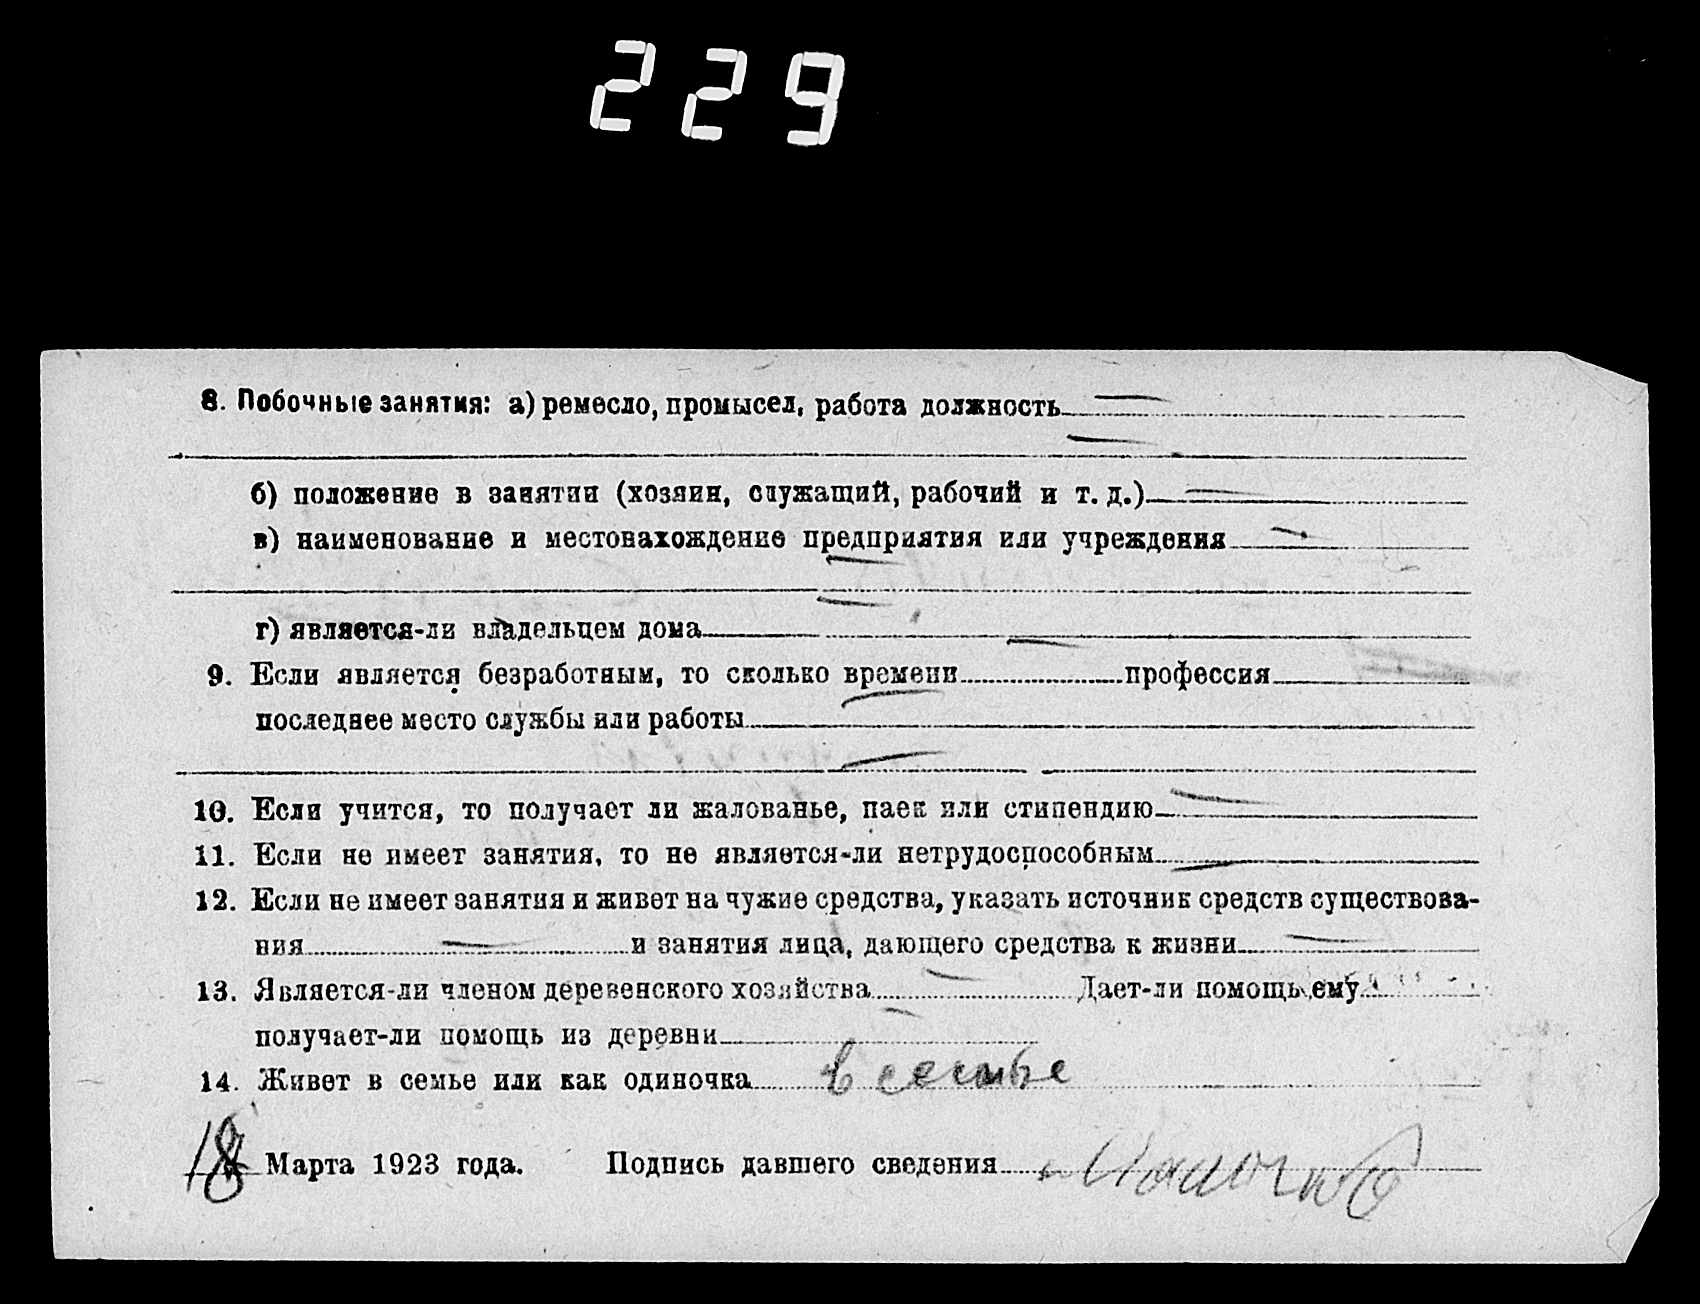 229
8. Побочные занятия: а) ремесло, промысел, работа должность —
—
б) положение в занятии (хозяин, служащий, рабочий и т. д.) —
в) наименование и местонахождение предприятия или учреждения —
—
г) является-ли владельцем дома —
9. Если является безработным, то сколько времени — профессия —
последнее место службы или работы —
—
10. Если учится, то получает ли жалованье, паек или стипендию —
11. Если не имеет занятия, то не является-ли нетрудоспособным —
12. Если не имеет занятия и живет на чужие средства, указать источник средств существова-
ния — и занятия лица, дающего средства к жизни —
13. Является-ли членом деревенского хозяйства — Дает-ли помощь ему
получает-ли помощь из деревни —
14. Живет в семье или как одиночка в семье
18 Марта 1923 года. Подпись давшего сведения